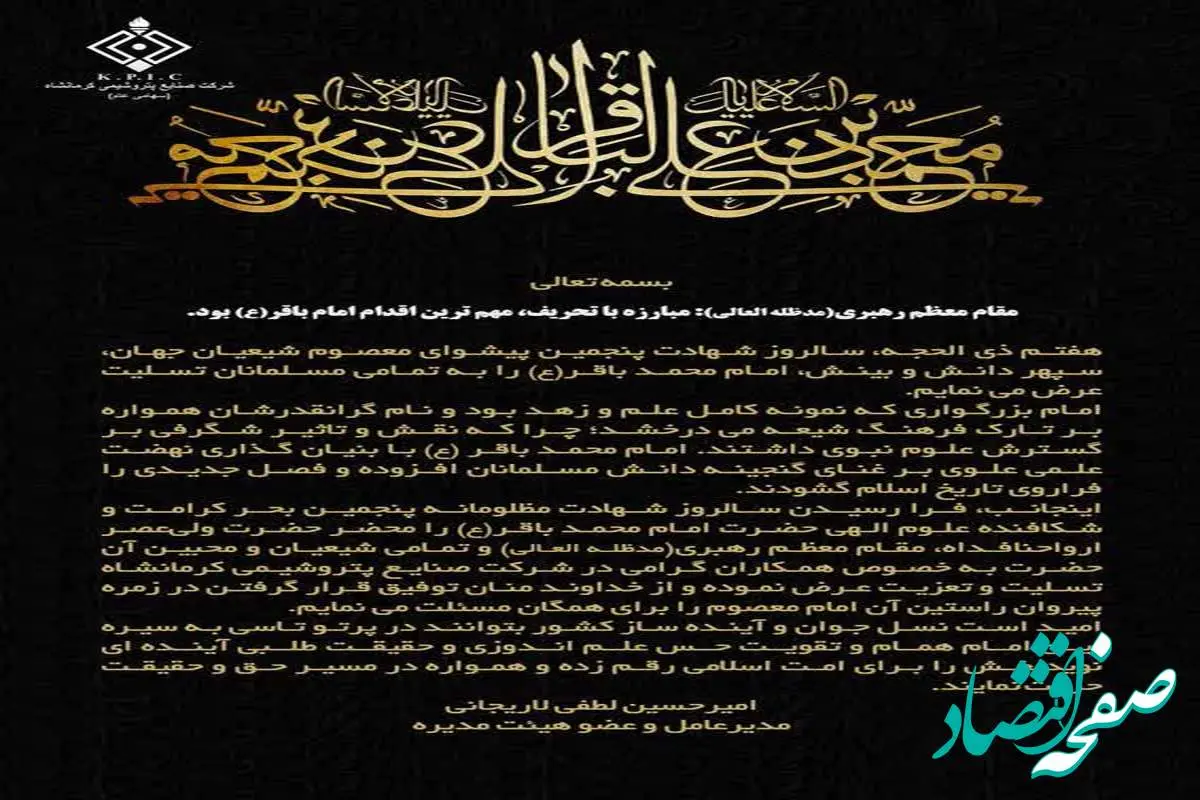 K.P.I.C
شرکت صنایع پتروشیمی کرمانشاه
(سهامی عام)
السلام علیک
محمد بن علی الباقر
بسمه تعالی
مقام معظم رهبری(مدظله العالی): مبارزه با تحریف، مهم ترین اقدام امام باقر(ع) بود.
هفتم ذی الحجه، سالروز شهادت پنجمین پیشوای معصوم شیعیان جهان،
سپهر دانش و بینش، امام محمد باقر(ع) را به تمامی مسلمانان تسلیت
عرض می نمایم.
امام بزرگواری که نمونه کامل علم و زهد بود و نام گرانقدرشان همواره
بر تارک فرهنگ شیعه می درخشد؛ چرا که نقش و تاثیر شگرفی بر
گسترش علوم نبوی داشتند. امام محمد باقر (ع) با بنیان گذاری نهضت
علمی علوی بر غنای گنجینه دانش مسلمانان افزوده و فصل جدیدی را
فراروی تاریخ اسلام گشودند.
اینجانب، فرا رسیدن سالروز شهادت مظلومانه پنجمین بحر کرامت و
شکافنده علوم الهی حضرت امام محمد باقر(ع) را محضر حضرت ولی‌عصر
ارواحنافداه، مقام معظم رهبری(مدظله العالی) و تمامی شیعیان و محبین آن
حضرت به خصوص همکاران گرامی در شرکت صنایع پتروشیمی کرمانشاه
تسلیت و تعزیت عرض نموده و از خداوند منان توفیق قرار گرفتن در زمره
پیروان راستین آن امام معصوم را برای همگان مسئلت می نمایم.
امید است نسل جوان و آینده ساز کشور بتوانند در پرتو تاسی به سیره
امام همام و تقویت حس علم اندوزی و حقیقت طلبی آینده ای
را برای امت اسلامی رقم زده و همواره در مسیر حق و حقیقت
نمایند.
امیرحسین لطفی لاریجانی
مدیرعامل و عضو هیئت مدیره
صفحه اقتصاد